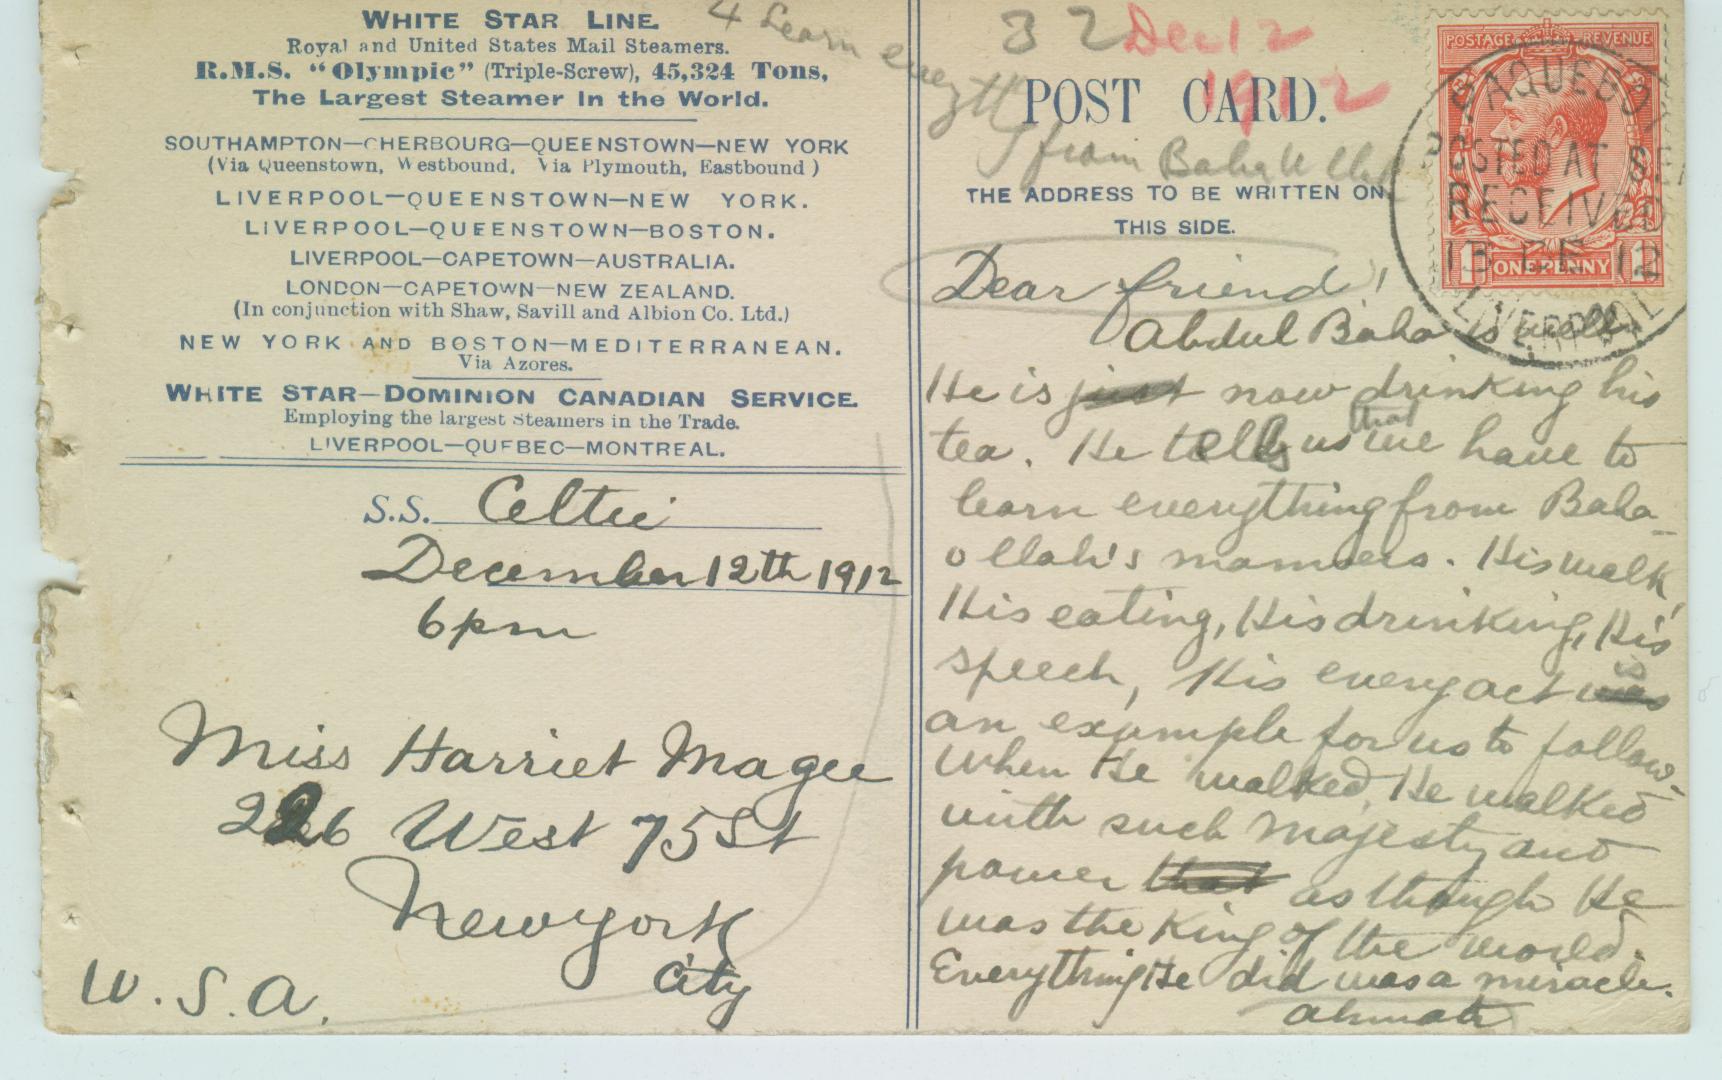 WHITE STAR LINE.
Royal and United States Mail Steamers.
R.M.S. "Olympic" (Triple-Screw), 45,324 Tons,
The Largest Steamer in the World.
SOUTHAMPTON—CHERBOURG—QUEENSTOWN—NEW YORK
(Via Queenstown, Westbound, Via Plymouth, Eastbound)
LIVERPOOL—QUEENSTOWN—NEW YORK.
LIVERPOOL—QUEENSTOWN—BOSTON.
LIVERPOOL—CAPETOWN—AUSTRALIA.
LONDON—CAPETOWN—NEW ZEALAND.
(In conjunction with Shaw, Savill and Albion Co. Ltd.)
NEW YORK AND BOSTON—MEDITERRANEAN.
Via Azores.
WHITE STAR—DOMINION CANADIAN SERVICE.
Employing the largest Steamers in the Trade.
LIVERPOOL—QUEBEC—MONTREAL.
S.S. Celtic
December 12th 1912
6 pm
Miss Harriet Magee
226 West 75 St
New york
City
U.S.A.
4 Learn
from
32
Dec 12
1912
POST CARD.
THE ADDRESS TO BE WRITTEN ON
THIS SIDE.
POSTAGE REVENUE
1 ONE PENNY 1
PAQUEBOT
POSTED AT SEA
RECEIVED
13 DE 12
LIVERPOOL
Dear friend!
Abdul Baha is well
He is just now drinking his
tea. He tells us that we have to
learn everything from Baha-
ollah's manners. His walk,
His eating, His drinking, His
speech, His every act was is
an example for us to follow.
When He walked, He walked
with such majesty and
power that as though He
was the King of the world.
Everything He did was a miracle.
Ahmad